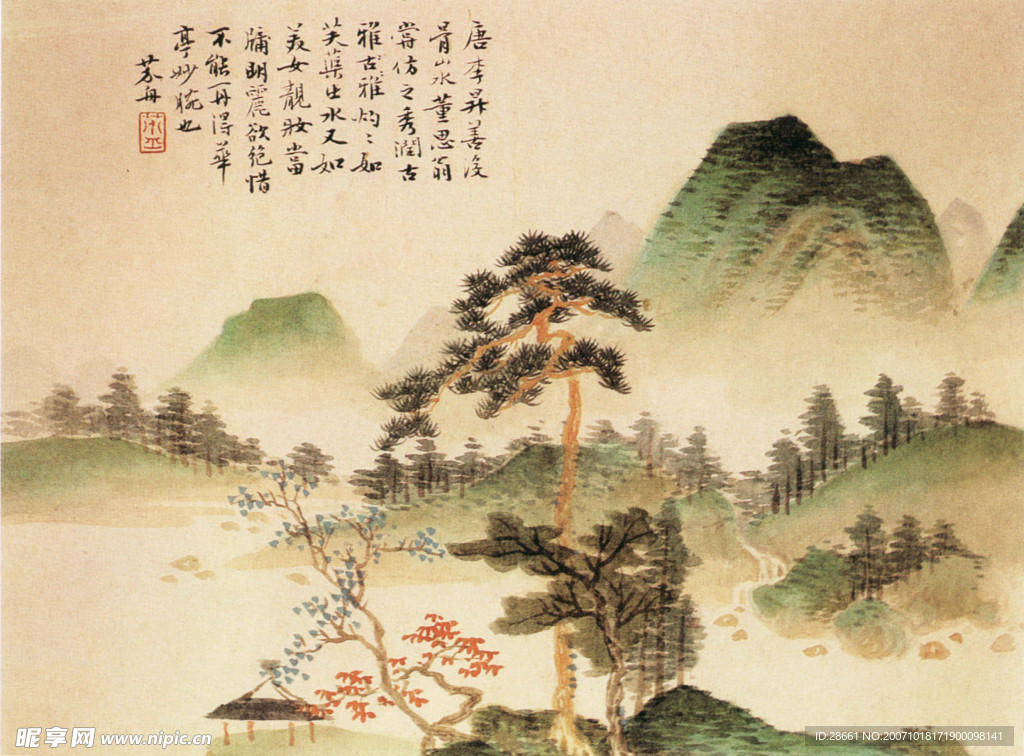 唐李昇善没
骨山水董思翁
嘗仿之秀潤古
雅古雅灼灼如
芙蕖出水又如
美女靚妝當
牗明麗欲絕惜
不能再得華
亭妙腕也
昵享网 www.nipic.cn
ID:28661 NO:20071018171900098141